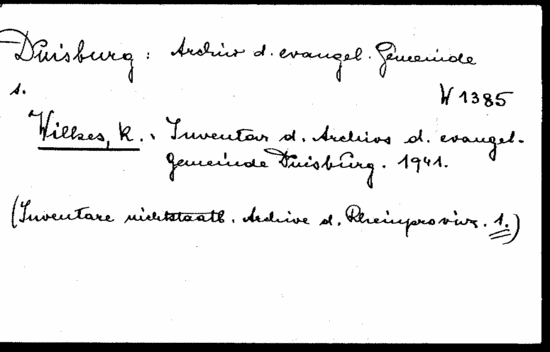 Duisburg: Archiv d. evangel. Gemeinde
s.
W 1385
Wilkes, K., Inventar d. Archivs d. evangel.
Gemeinde Duisburg. 1941.
(Inventare nichtstaatl. Archive d. Rheinprovinz. 1.)